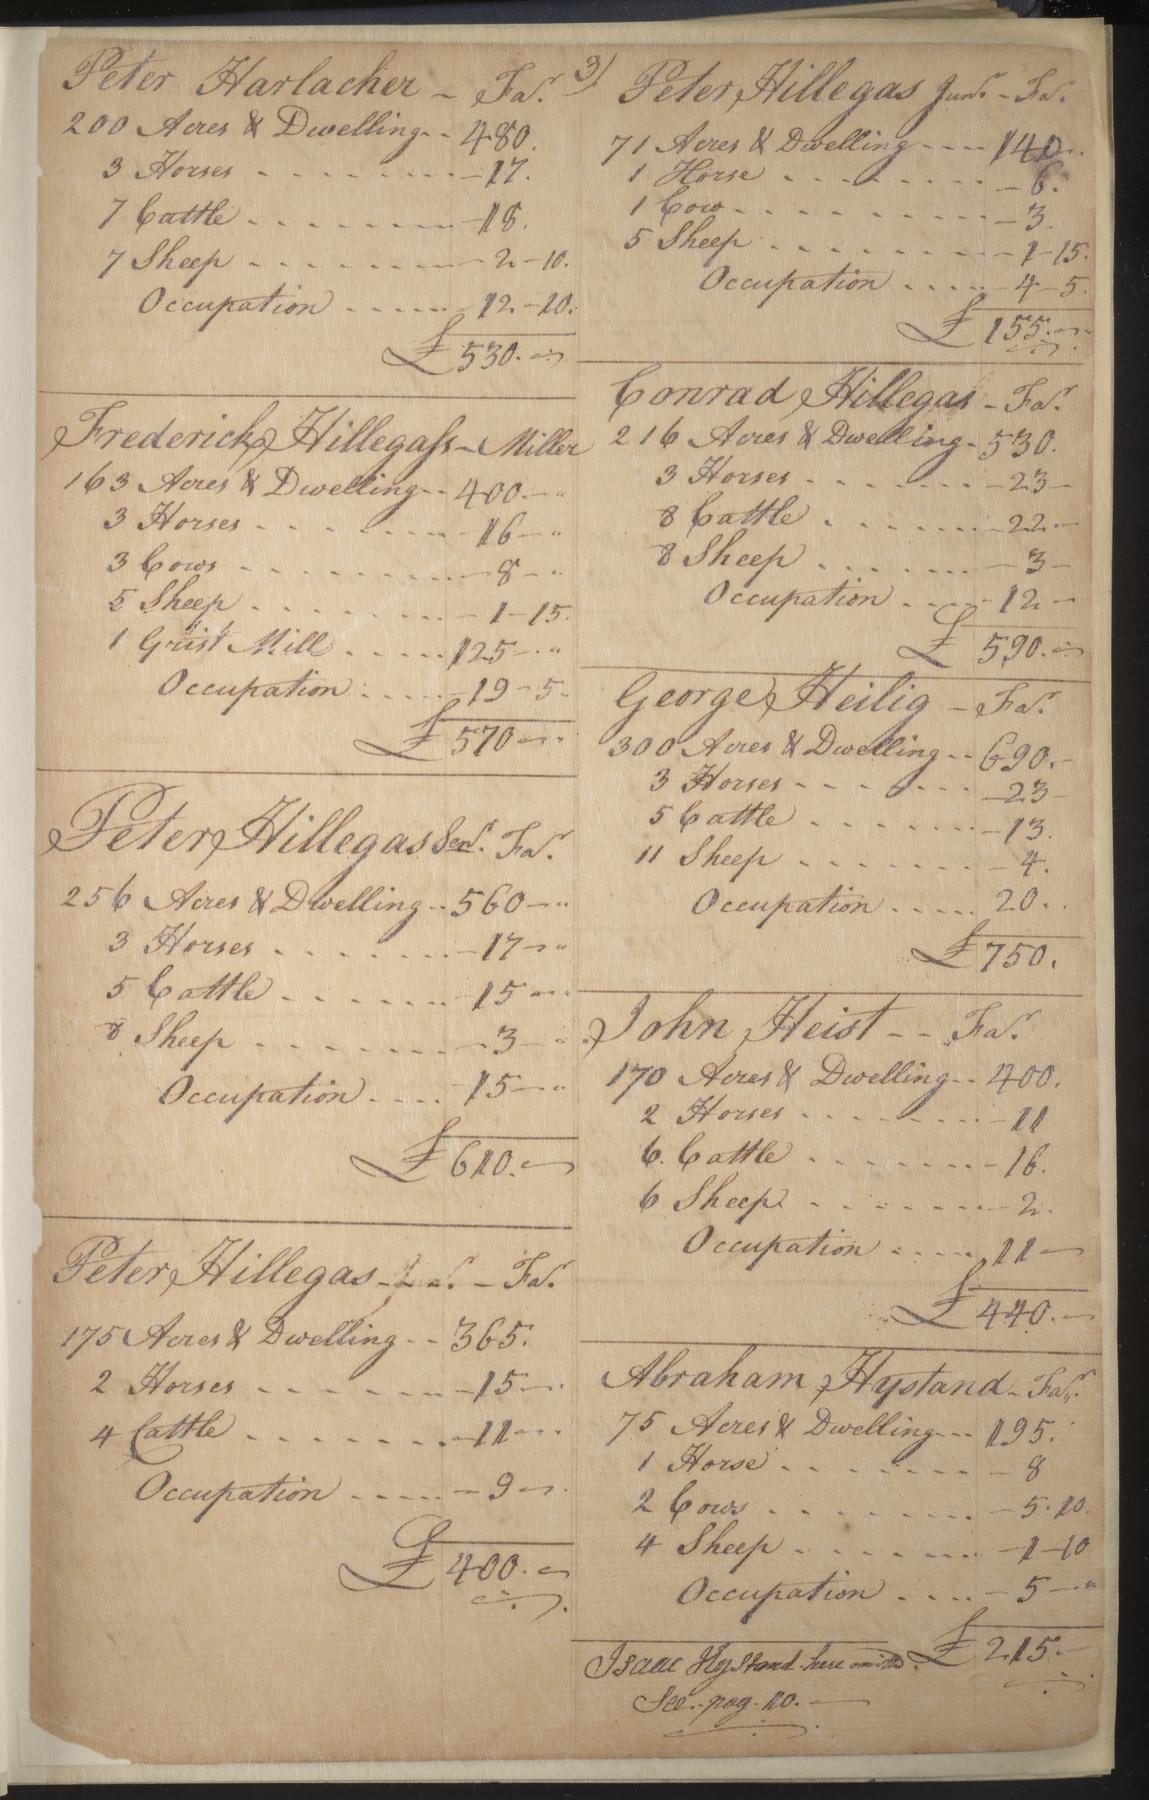 3)
Peter Harlacher - Far.
200 Acres & Dwelling - - 480.
3 Horses - - - - - - - 17.
7 Cattle - - - - - - - 18.
7 Sheep - - - - - - - 2-10.
Occupation - - - - - 12-10.
£ 530.
Frederick Hillegass - Miller
163 Acres & Dwelling - - 400. - "
3 Horses - - - - - - - 16 - "
3 Cows - - - - - - - 8 - "
5 Sheep - - - - - - - 1-15.
1 Grist Mill - - - - - 125 - "
Occupation - - - - - 19-5.
£ 570 - "
Peter Hillegas Senr. Far.
256 Acres & Dwelling - - 560 - "
3 Horses - - - - - - - 17 - "
5 Cattle - - - - - - - 15 - "
8 Sheep - - - - - - - 3 - "
Occupation - - - - 15 - "
£ 610. -
Peter Hillegas - - Far.
175 Acres & Dwelling - - 365.
2 Horses - - - - - - - 15 -
4 Cattle - - - - - - - 11 -
Occupation - - - - - 9 -
£ 400. -
Peter Hillegas Junr. - Far.
71 Acres & Dwelling - - - 140.
1 Horse - - - - - - - 6.
1 Cow - - - - - - - 3.
5 Sheep - - - - - - - 1-15.
Occupation - - - - - 4-5.
£ 155. -
Conrad Hillegas - Far.
216 Acres & Dwelling - 530.
3 Horses - - - - - - - 23 -
8 Cattle - - - - - - - 22 -
8 Sheep - - - - - - - 3 -
Occupation - - - - 12 -
£ 590. -
George Heilig - Far.
300 Acres & Dwelling - - 690. -
3 Horses - - - - - - - 23 -
5 Cattle - - - - - - - 13.
11 Sheep - - - - - - - 4.
Occupation - - - - - 20. .
£ 750.
John Heist - - Far.
170 Acres & Dwelling - - 400.
2 Horses - - - - - - - 11
6. Cattle - - - - - - - 16.
6 Sheep - - - - - - - 2.
Occupation - - - - - 11 -
£ 440. -
Abraham Hystand - Far.
75 Acres & Dwelling - - - 195.
1 Horse - - - - - - - 8
2 Cows - - - - - - - 5.10.
4 Sheep - - - - - - - 1-10
Occupation - - - - - 5 - "
£ 215. -
Isaac Hystand here omitted
See pag. 10. -